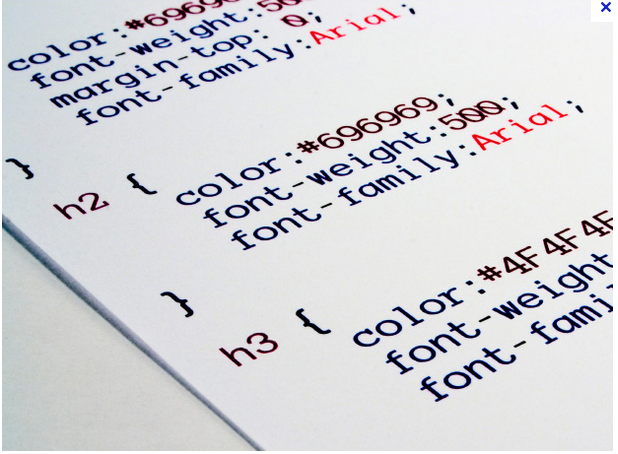 color:#69696
font-weight:50
margin-top: 0;
font-family:Arial;
}
h2 {
color:#696969;
font-weight:500;
font-family:Arial;
}
h3 {
color:#4F4F4F
font-weight
font-fami